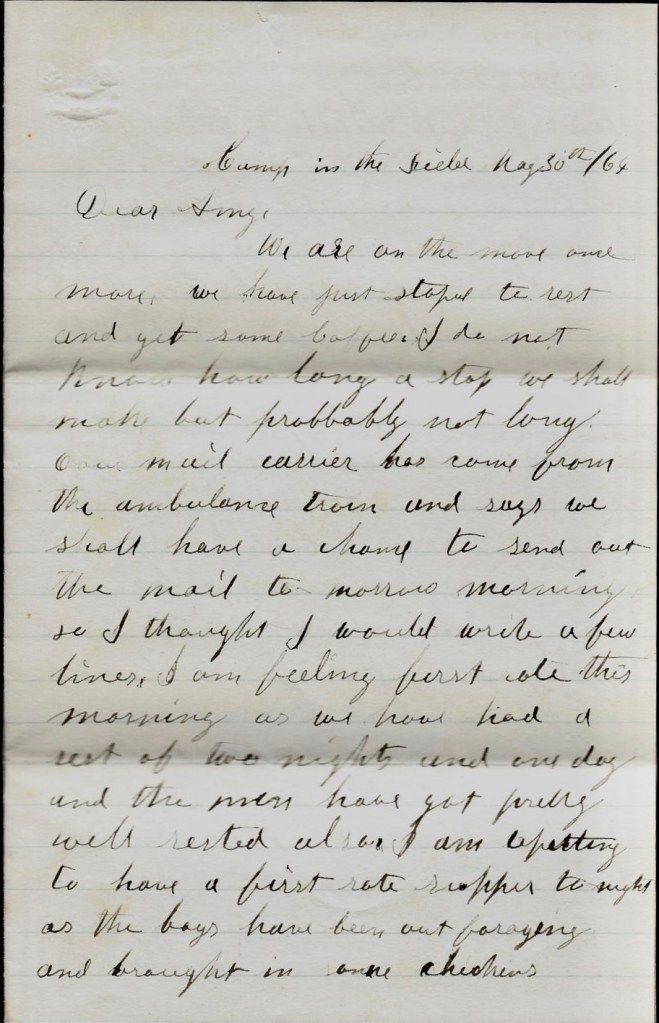 Camp in the Field May 30th/64
Dear Amy,
We are on the move once
more, we have just stoped to rest
and get some Coffee. I do not
Know how long a stop we shall
make but probbably not long.
Our mail carrier has come from
the ambulance train and says we
shall have a chance to send out
the mail to morrow morning,
so I thought I would write a few
lines, I am feeling first rate this
morning as we have had a
rest of two nights and one day
and the men have got pretty
well rested also, I am expecting
to have a first rate supper to night
as the boys have been out foraging
and brought in some chickens